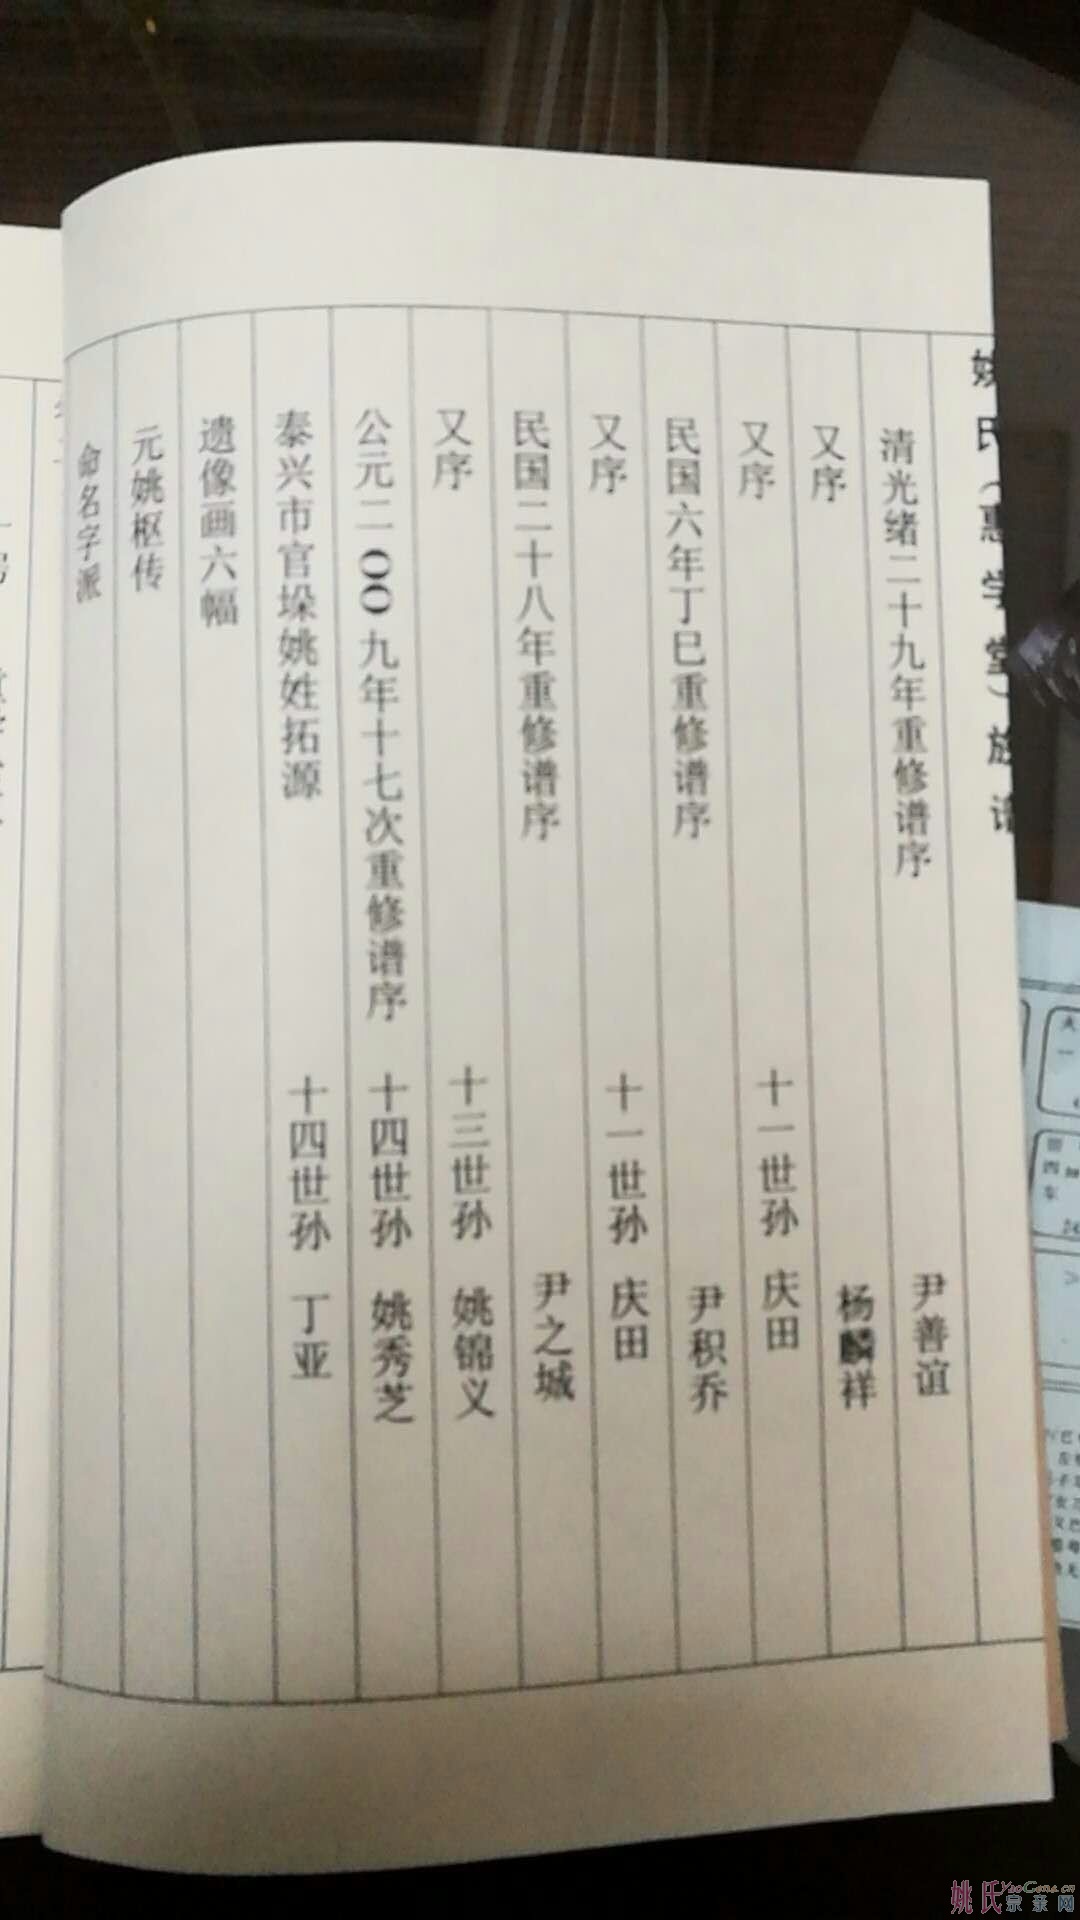 姚氏(惠学堂)族谱
清光绪二十九年重修谱序 尹善谊
又序 杨麟祥
又序 十一世孙 庆田
民国六年丁巳重修谱序 尹积乔
又序 十一世孙 庆田
民国二十八年重修谱序 尹之城
又序 十三世孙 姚锦义
公元二〇〇九年十七次重修谱序 十四世孙 姚秀芝
泰兴市官垛姚姓拓源 十四世孙 丁亚
遗像画六幅
元姚枢传
命名字派
姚氏宗亲网
YaoGens.cn